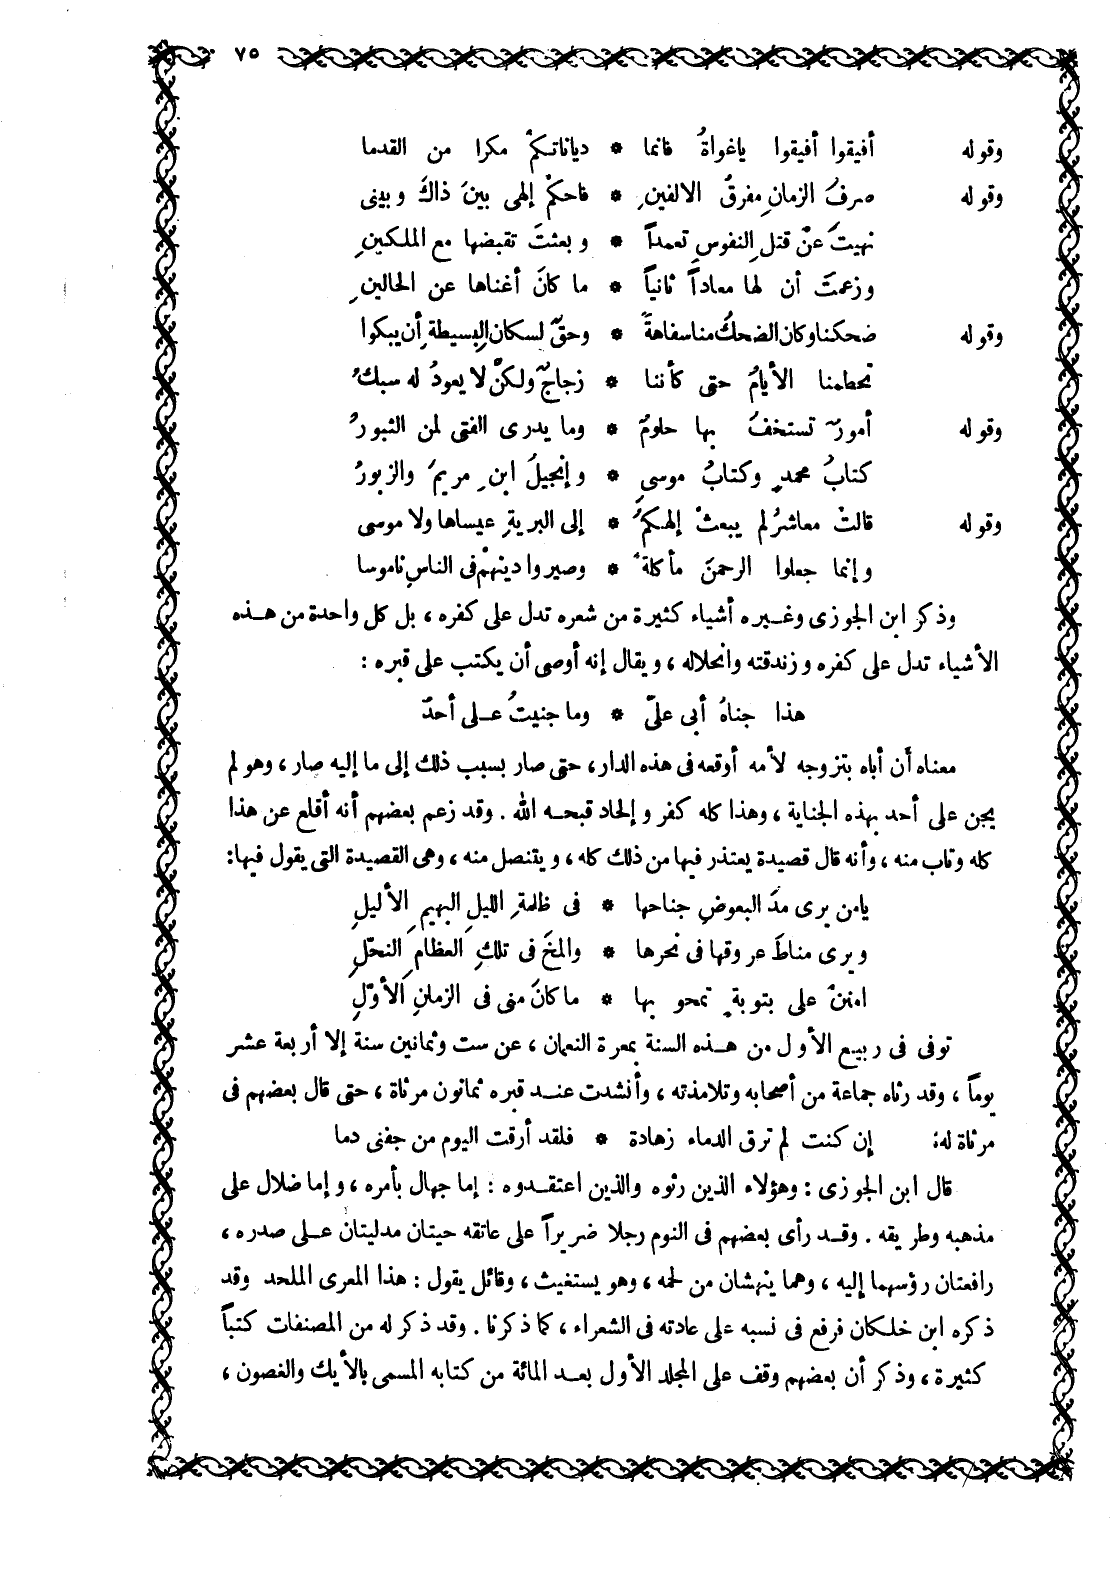 ٧٥
وقوله أفيقوا أفيقوا ياغواةُ فانما * دياناتكمْ مكرا من القدما
وقوله صرفُ الزمانِ مفرقُ الالفينِ * فاحكمْ إلهى بينَ ذاكَ وبينى
نهيتَ عنْ قتلِ النفوسِ تعمداً * وبعثتَ تقبضها مع الملكينِ
وزعمتَ أن لها معاداً ثانياً * ما كانَ أغناها عن الحالينِ
وقوله ضحكنا وكان الضحكُ منا سفاهةً * وحقّ لسكان البسيطةِ أن يبكوا
تحطمنا الأيامُ حتى كأننا * زجاجٌ ولكنْ لا يعودُ له سبكُ
وقوله أمورٌ تستخفُ بها حلومٌ * وما يدرى الفتى لمن الثبورُ
كتابُ محمدٍ وكتابُ موسى * وإنجيلُ ابنِ مريمَ والزبورُ
وقوله قالتْ معاشرُ لم يبعثْ إلهكمُ * إلى البريةِ عيساها ولا موسى
وإنما جعلوا الرحمنَ مأكلةً * وصيروا دينهمْ فى الناسِ ناموسا
وذكر ابن الجوزى وغيره أشياء كثيرة من شعره تدل على كفره ، بل كل واحدة من هذه
الأشياء تدل على كفره وزندقته وانحلاله ، ويقال إنه أوصى أن يكتب على قبره :
هذا جناهُ أبى علىّ * وما جنيتُ على أحدْ
معناه أن أباه بتزوجه لأمه أوقعه فى هذه الدار ، حتى صار بسبب ذلك إلى ما إليه صار ، وهو لم
يجن على أحد بهذه الجناية ، وهذا كله كفر وإلحاد قبحه الله . وقد زعم بعضهم أنه أقلع عن هذا
كله وتاب منه ، وأنه قال قصيدة يعتذر فيها من ذلك كله ، ويتنصل منه ، وهى القصيدة التى يقول فيها :
يامن يرى مدَّ البعوضِ جناحها * فى ظلمةِ الليلِ البهيمِ الأليلِ
ويرى مناطَ عروقها فى نحرها * والمخَ فى تلكِ العظامِ النحّلِ
امننْ على بتوبةٍ تمحو بها * ماكانَ منى فى الزمانِ الأوّلِ
توفى فى ربيع الأول من هذه السنة بمعرة النعمان ، عن ست وثمانين سنة إلا أربعة عشر
يوماً ، وقد رثاه جماعة من أصحابه وتلامذته ، وأنشدت عند قبره ثمانون مرثاة ، حتى قال بعضهم فى
مرثاة له : إن كنت لم ترق الدماء زهادة * فلقد أرقت اليوم من جفنى دما
قال ابن الجوزى : وهؤلاء الذين رثوه والذين اعتقدوه : إما جهال بأمره ، وإما ضلال على
مذهبه وطريقه . وقد رأى بعضهم فى النوم رجلا ضريراً على عاتقه حيتان مدليتان على صدره ،
رافعتان رؤسهما إليه ، وهما ينهشان من لحمه ، وهو يستغيث ، وقائل يقول : هذا المعرى الملحد وقد
ذكره ابن خلكان فرفع فى نسبه على عادته فى الشعراء ، كما ذكرنا . وقد ذكر له من المصنفات كتباً
كثيرة ، وذكر أن بعضهم وقف على المجلد الأول بعد المائة من كتابه المسمى بالأيك والغصون ،